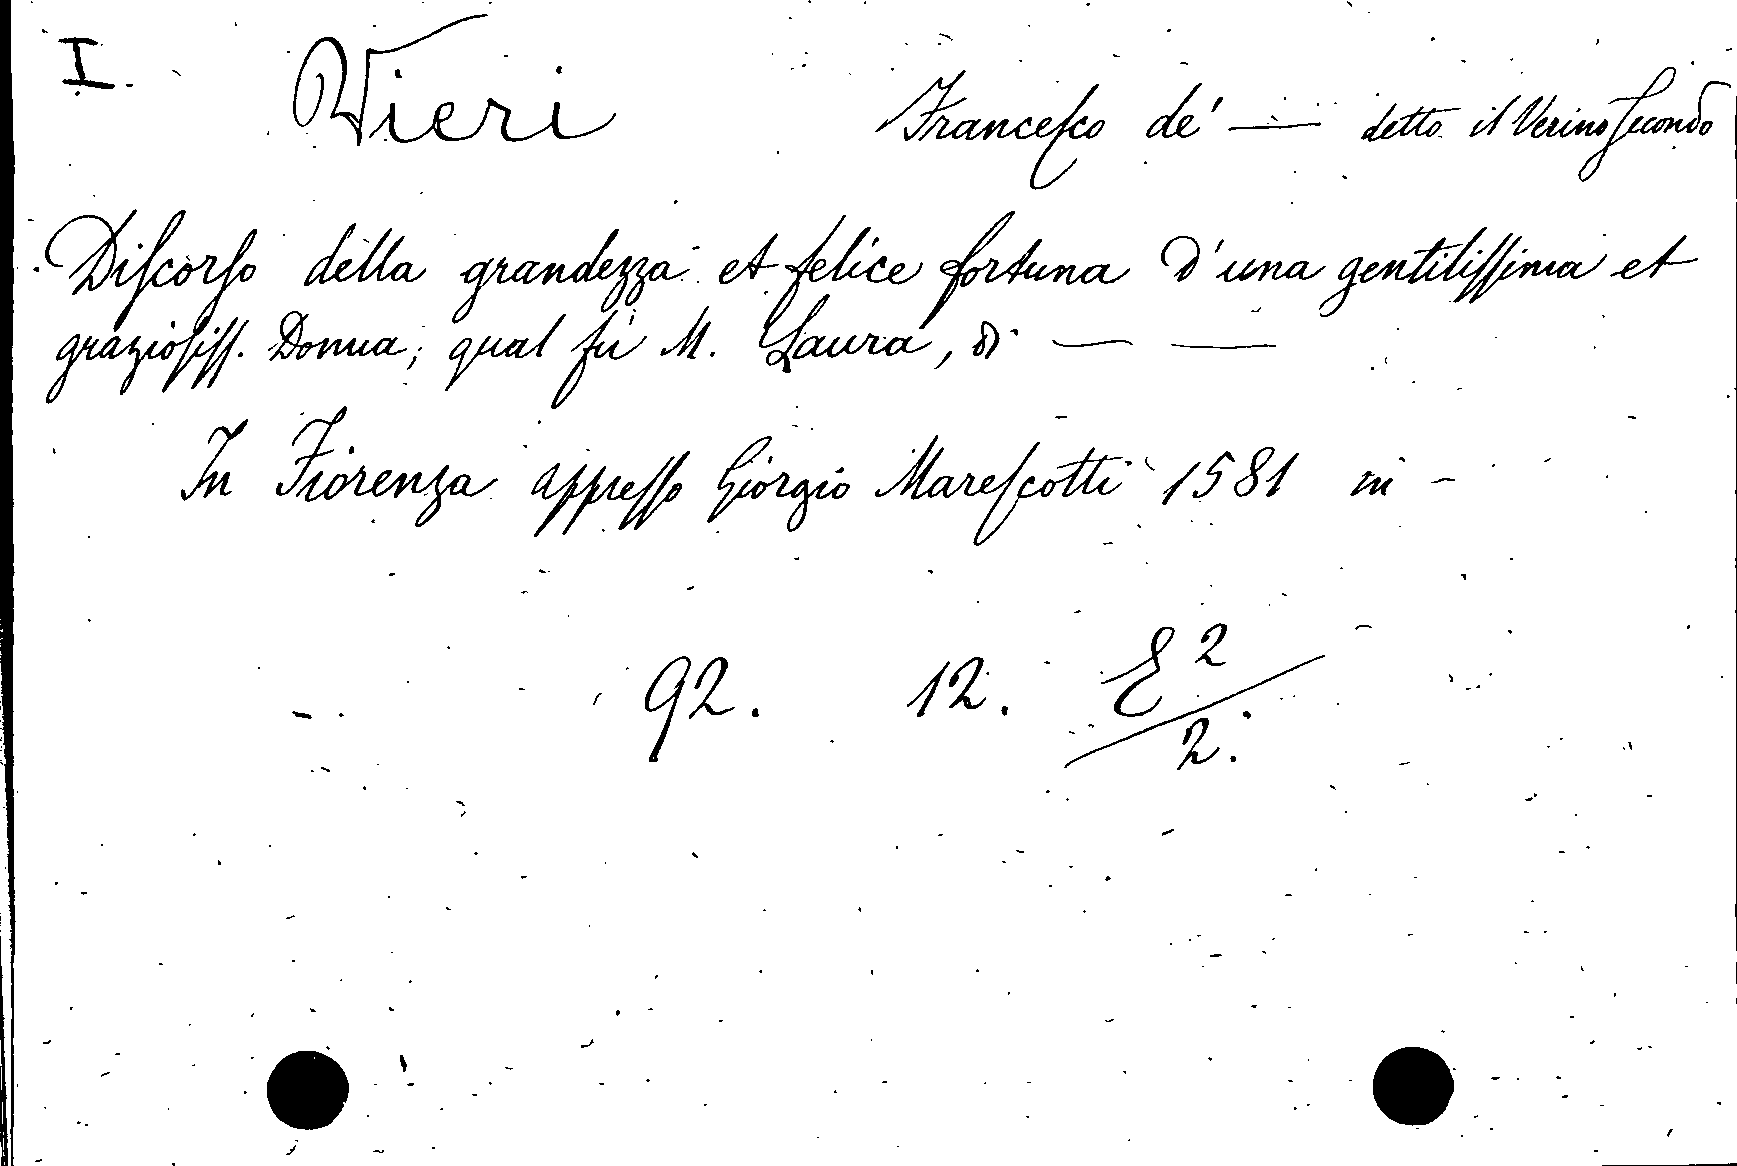 I. Vieri Francesco de' — detto il Verino Secondo
Discorso della grandezza et felice fortuna d'una gentilissima et
graziosiss. Donna; qual fù M. Laura, di — —
In Fiorenza appresso Giorgio Marescotti 1581 in -
92. 12. E 2/2.